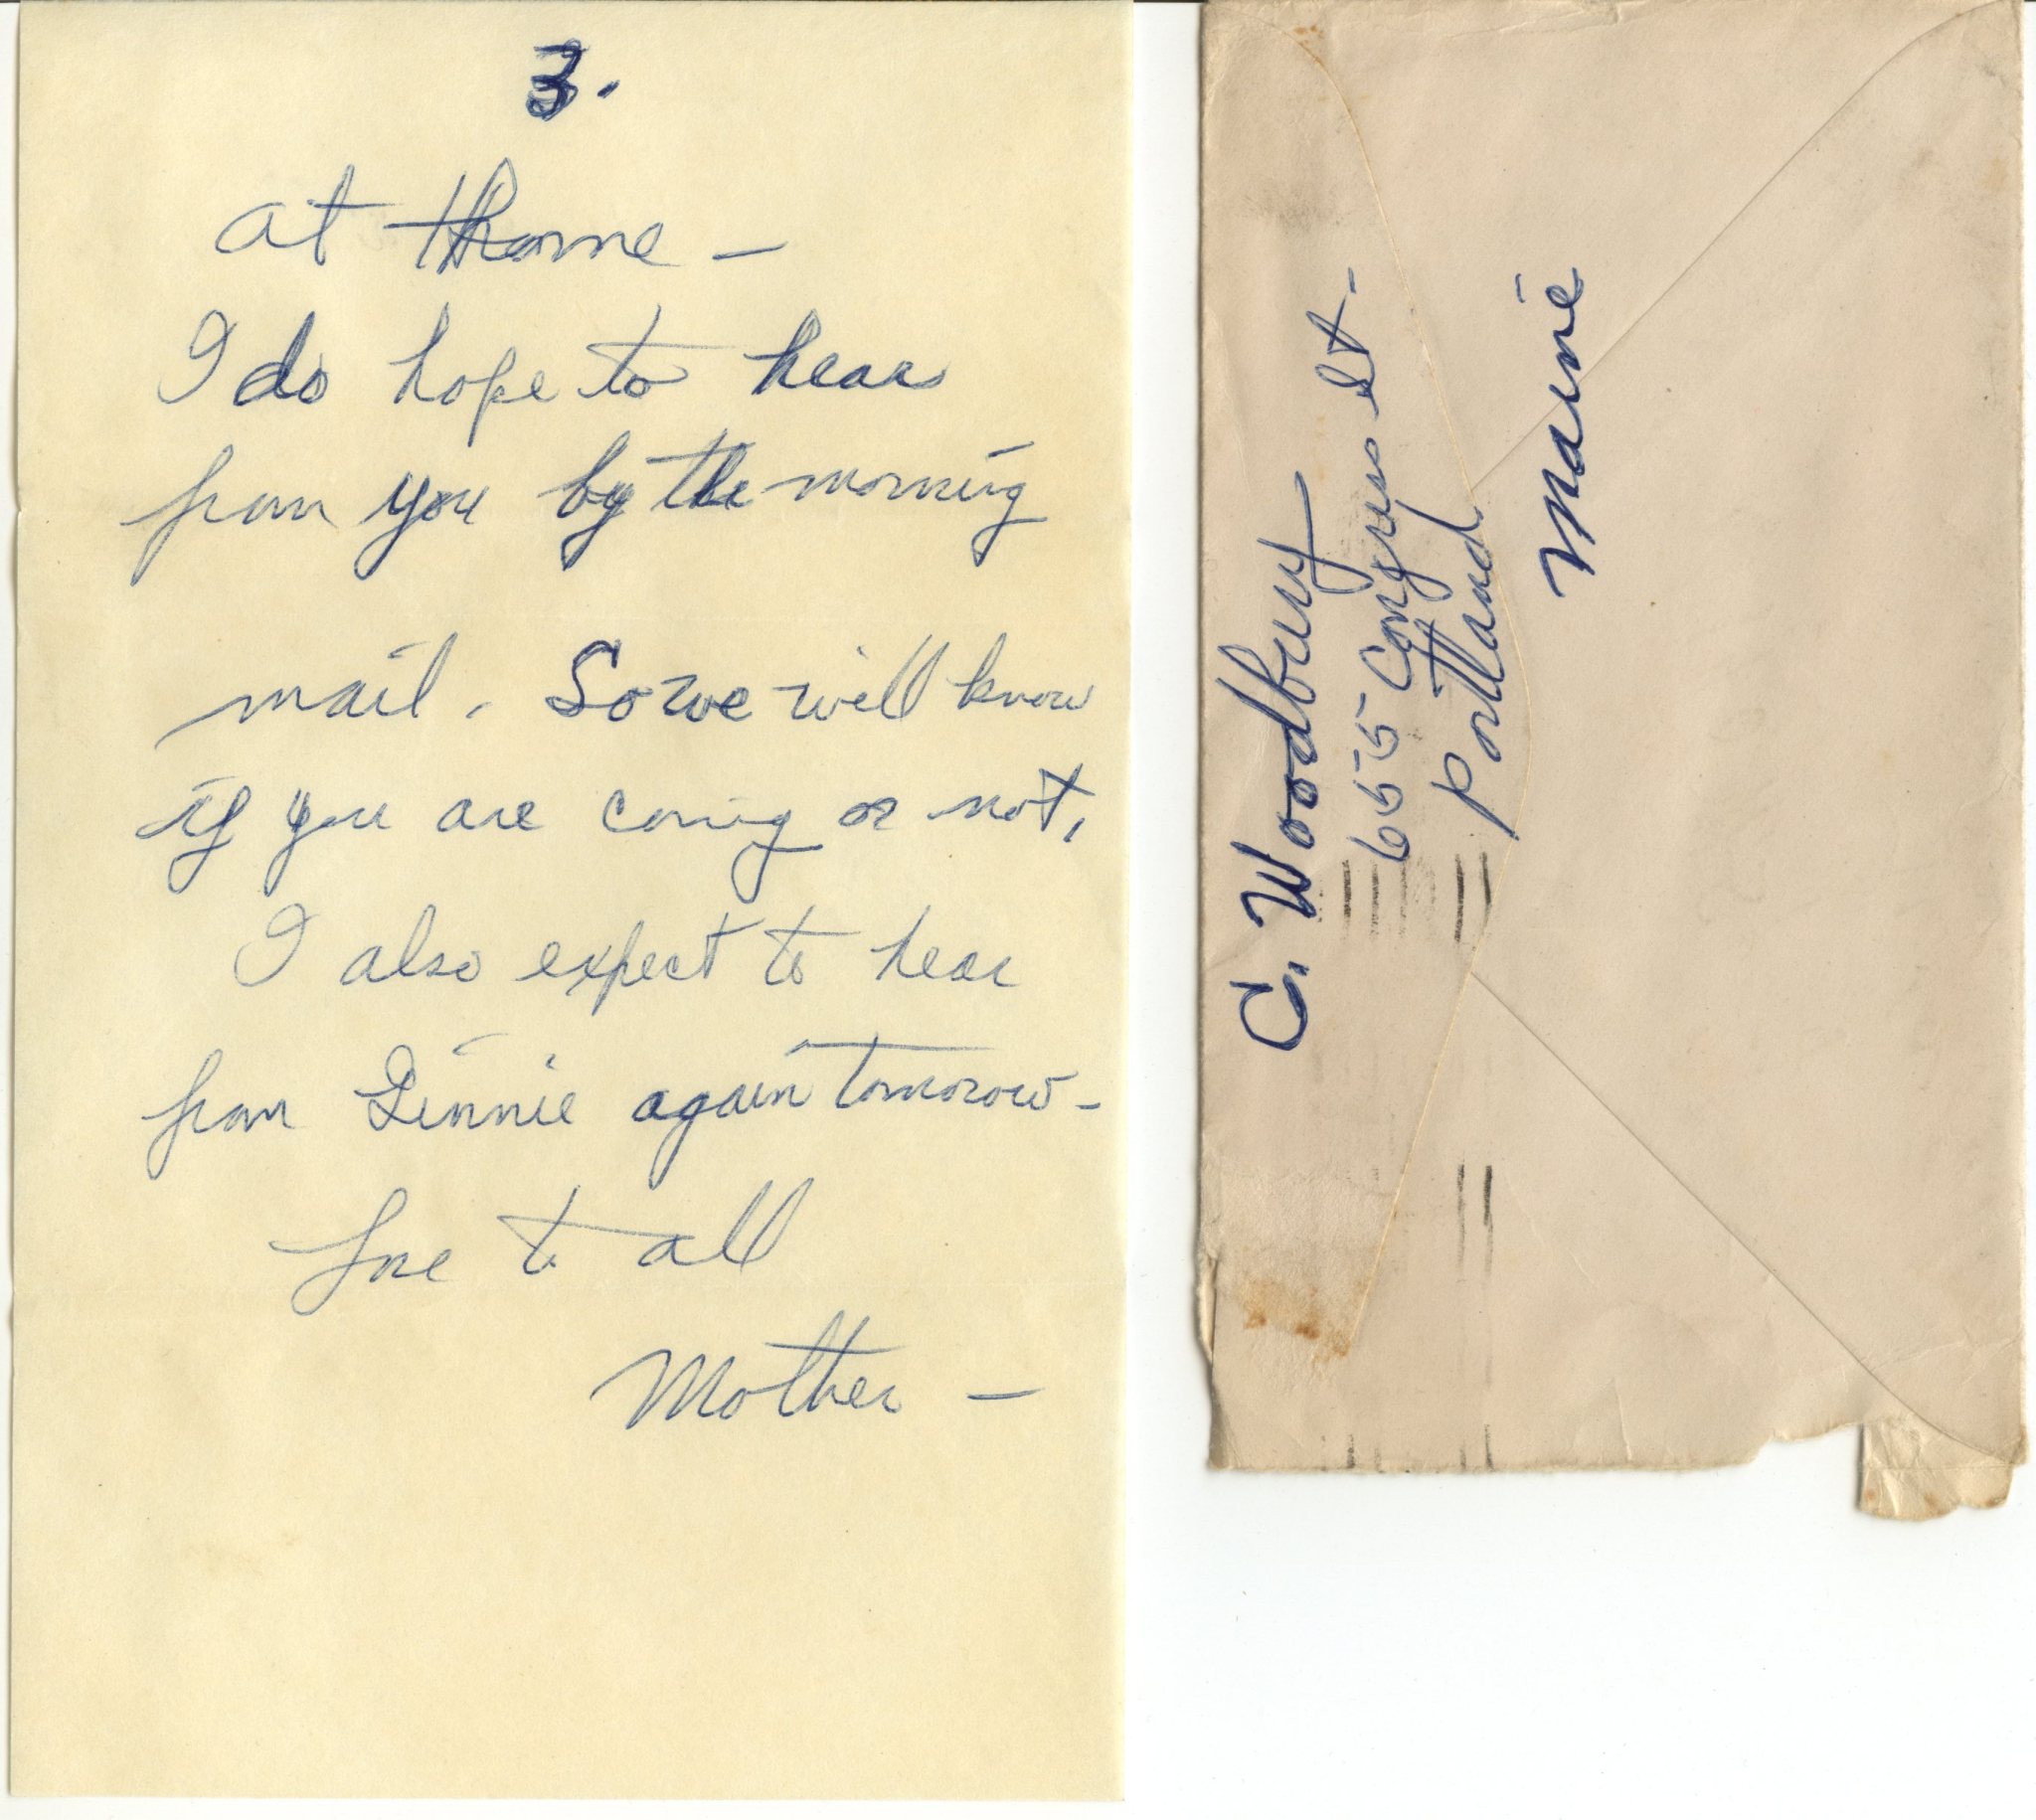 3.
at home -
I do hope to hear
from you by the morning
mail. So we will know
if you are coming or not,
I also expect to hear
from Linnie again tomorow -
Love to all
Mother -
C. Woodbury
655 Congress St -
Portland
Maine